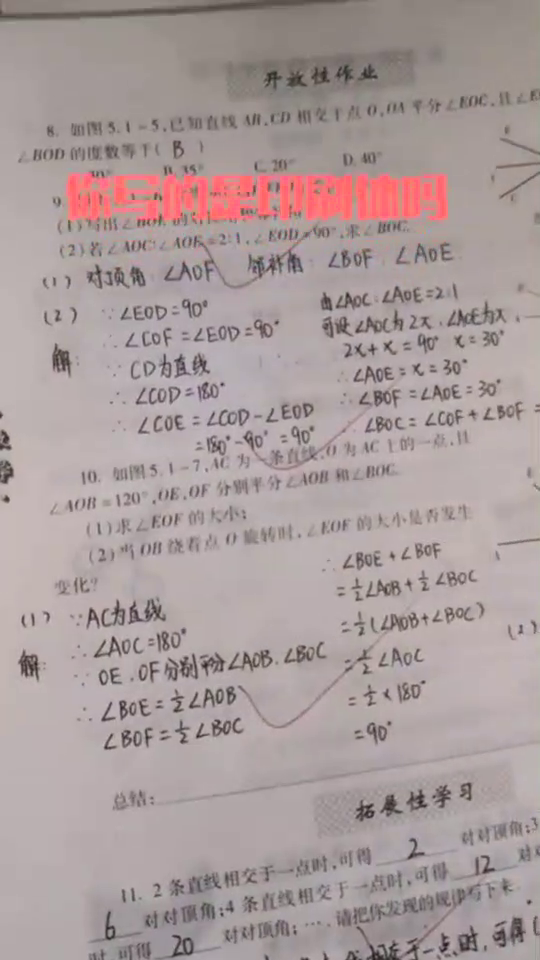 开放性作业
8. 如图5.1-5,已知直线AB,CD相交于点O,OA平分∠EOC,且∠E
∠BOD的度数等于( B )
C. 20° D. 40°
9.
你写的是印刷体吗
(1)写出∠BOE的
(2)若∠AOC:∠AOE=2:1,∠EOD=90°,求∠BOC.
(1) 对顶角:∠AOF 邻补角:∠BOF、∠AOE
(2) ∵∠EOD=90°
解: ∴∠COF=∠EOD=90°
∵CD为直线
∴∠COD=180°
∴∠COE=∠COD-∠EOD
=180°-90°=90°
由∠AOC:∠AOE=2:1
可设∠AOC为2x,∠AOE为x,
2x+x=90° x=30°
∴∠AOE=x=30°
∴∠BOF=∠AOE=30°
∴∠BOC=∠COF+∠BOF=
10. 如图5.1-7,AC为一条直线,O为AC上的一点,且
∠AOB=120°,OE,OF分别平分∠AOB和∠BOC.
(1)求∠EOF的大小;
(2)当OB绕着点O旋转时,∠EOF的大小是否发生
变化?
(1) ∵AC为直线
解: ∴∠AOC=180°
∵OE、OF分别平分∠AOB、∠BOC
∴∠BOE=½∠AOB
∠BOF=½∠BOC
∴∠BOE+∠BOF
=½∠AOB+½∠BOC
=½(∠AOB+∠BOC)
=½∠AOC
=½×180°
=90°
(2)
总结:
拓展性学习
11. 2条直线相交于一点时,可得 2 对对顶角;3
6 对对顶角;4条直线相交于一点时,可得 12 对对
时,可得 20 对对顶角;…,请把你发现的规律写下来.
相交于一点时,可得